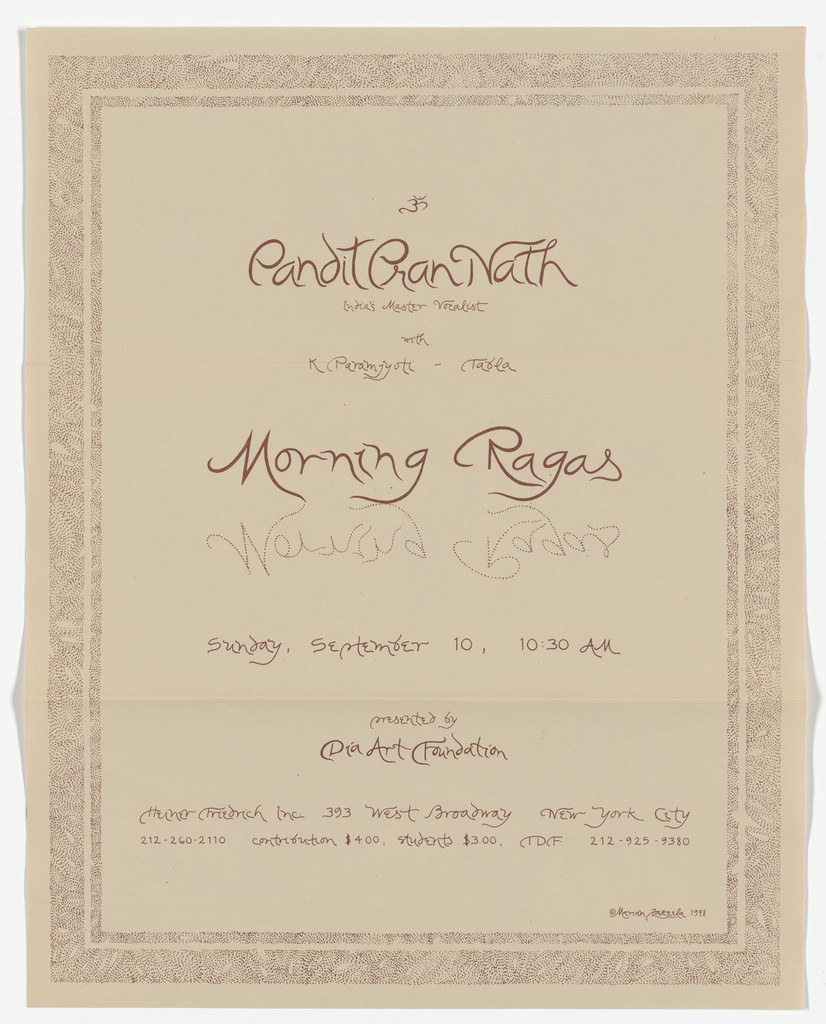 ॐ
Pandit Pran Nath
India's Master Vocalist
with
K. Paramjyoti - Tabla
Morning Ragas
Morning Ragas
Sunday, September 10, 10:30 AM
presented by
Dia Art Foundation
Heiner Friedrich Inc. 393 West Broadway New York City
212-260-2110 contribution $4.00, students $3.00, TDF 212-925-9380
©Marian Zazeela 1978